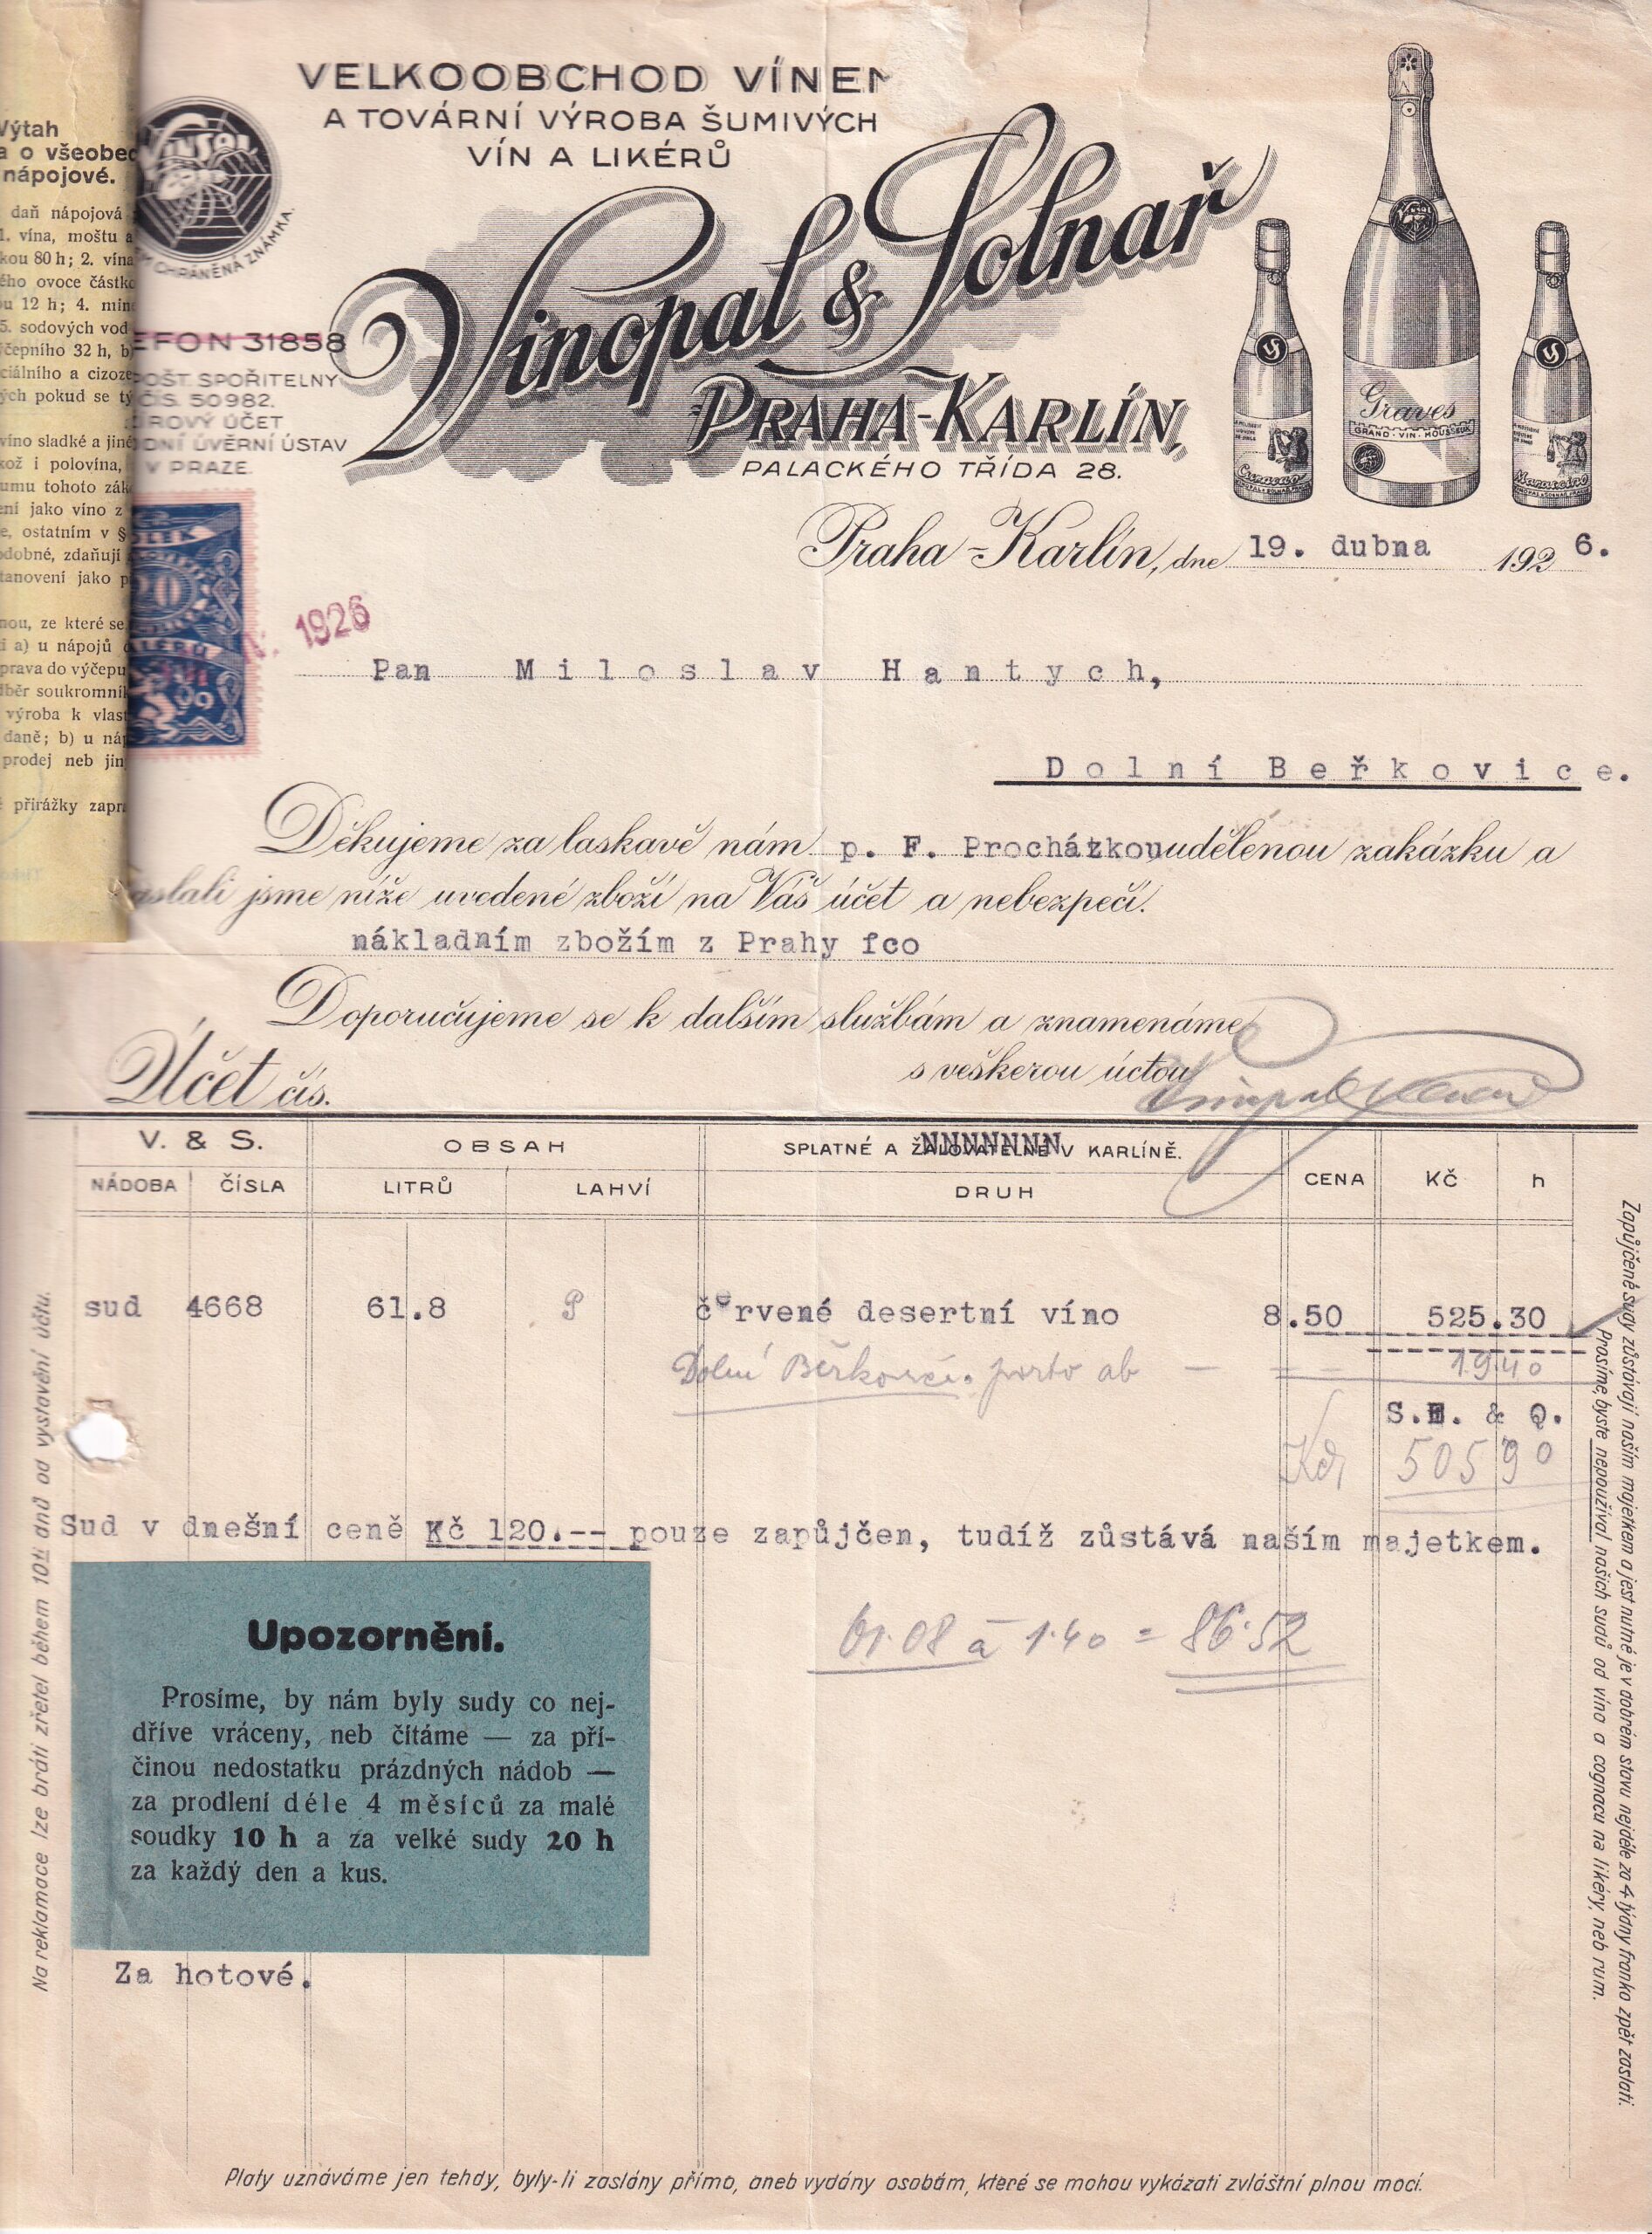 VELKOOBCHOD VÍNEM
A TOVÁRNÍ VÝROBA ŠUMIVÝCH
VÍN A LIKÉRŮ
Vinopal & Solnař
PRAHA-KARLÍN,
PALACKÉHO TŘÍDA 28.
CHRÁNĚNÁ ZNÁMKA.
EFON 31858
POŠT. SPOŘITELNY
ČÍS. 50982.
ÚVĚRNÍ ÚSTAV
V PRAZE.
Výtah
a o všeobec
nápojové.
daň nápojová
1. vína, moštu a
kou 80 h; 2. vína
ého ovoce částko
u 12 h; 4. min
5. sodových vod
čepního 32 h, b)
ciálního a cizoze
ých pokud se tý
víno sladké a jiné
kož i polovina,
umu tohoto zák
ení jako víno z
e, ostatním v §
odobné, zdaňují
tanovení jako p
nou, ze které se
í a) u nápojů
prava do výčepu
běr soukromník
výroba k vlast
daně; b) u náp
prodej neb jin
přirážky zapra
Graves
GRAND·VIN·MOUSSEUX
Curacao
Maraschino
Praha-Karlín, dne 19. dubna 1926.
1926
Pan Miloslav Hantych,
Dolní Beřkovice.
Děkujeme za laskavě nám p. F. Procházkou udělenou zakázku a
zaslali jsme níže uvedené zboží na Váš účet a nebezpečí.
nákladním zbožím z Prahy fco
Doporučujeme se k dalším službám a znamenáme
s veškerou úctou
Účet čís.
V. & S. OBSAH SPLATNÉ A ŽALOVATELNÉ V KARLÍNĚ. CENA KČ h
NÁDOBA ČÍSLA LITRŮ LAHVÍ DRUH
sud 4668 61.8 červené desertní víno 8.50 525.30
Dolní Běrkovic. porto ab — 19 40
S.E. & O.
Kč 505 90
Sud v dnešní ceně Kč 120.-- pouze zapůjčen, tudíž zůstává naším majetkem.
61.08 à 1.40 = 86.52
Upozornění.
Prosíme, by nám byly sudy co nej-
dříve vráceny, neb čítáme — za pří-
činou nedostatku prázdných nádob —
za prodlení déle 4 měsíců za malé
soudky 10 h a za velké sudy 20 h
za každý den a kus.
Za hotové.
Na reklamace lze bráti zřetel během 10ti dnů od vystavění účtu.
Zapůjčené sudy zůstávají naším majetkem a jest nutné je v dobrém stavu nejdéle za 4 týdny franko zpět zaslati.
Prosíme, byste nepoužíval našich sudů od vína a cognacu na likéry, neb rum.
Platy uznáváme jen tehdy, byly-li zaslány přímo, aneb vydány osobám, které se mohou vykázati zvláštní plnou mocí.